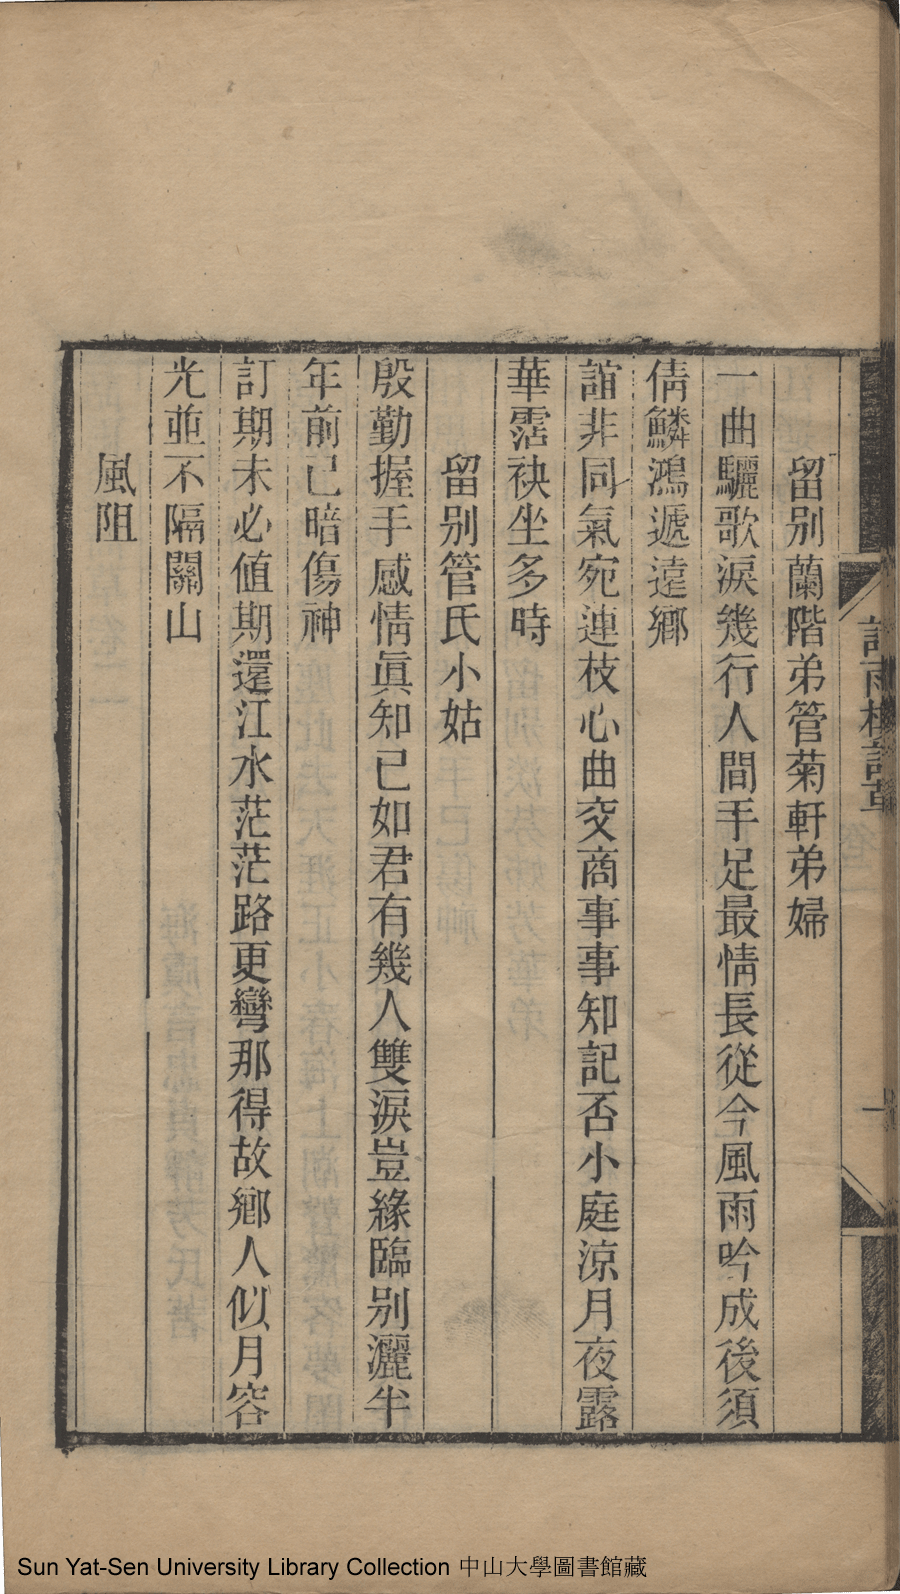 留别蘭階弟管菊軒弟婦
一曲驪歌淚幾行人間手足最情長從今風雨吟成後須
倩鱗鴻遞遠鄉
誼非同氣宛連枝心曲交商事事知記否小庭涼月夜露
華霑袂坐多時
留别管氏小姑
殷勤握手感情眞知已如君有幾人雙淚豈緣臨别灑半
年前已暗傷神
訂期未必値期還江水茫茫路更彎那得故鄉人似月容
光並不隔關山
風阻
Sun Yat-Sen University Library Collection 中山大學圖書館藏